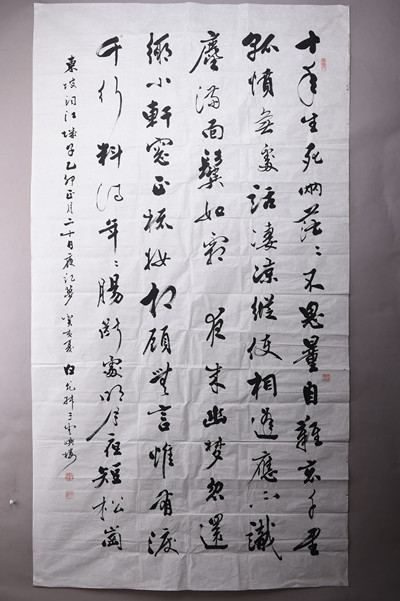 十年生死兩茫〻不思量自難忘千里
孤墳無處話淒涼縱使相逢應不識
塵滿面鬢如霜 夜來幽夢忽還
鄉小軒窗正梳妝相顧無言惟有淚
千行 料得年〻腸斷處明月夜短松崗
東坡詞江城子乙卯正月二十日夜記夢